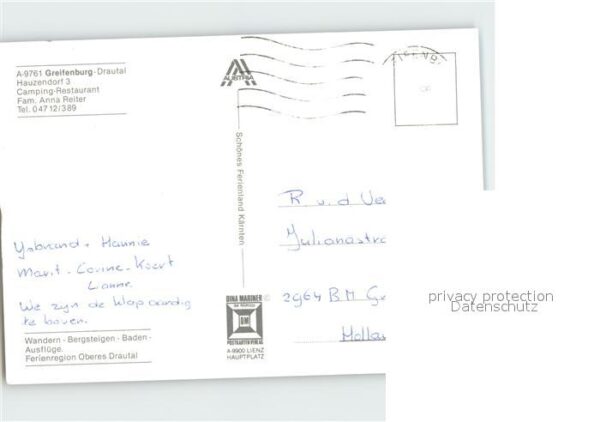 A-9761 Greifenburg-Drautal
Hauzendorf 3
Camping-Restaurant
Fam. Anna Reiter
Tel. 04712/389
AUSTRIA
Schönes Ferienland Kärnten
R. v. d Ve
Julianastra
2964 BM G
Holla
Ysbrand + Hannie
Marit - Corine - Koert
We zijn de
te boven.
Wandern - Bergsteigen - Baden -
Ausflüge.
Ferienregion Oberes Drautal
DINA MARINER
DM
POSTKARTENVERLAG
A-9900 LIENZ
HAUPTPLATZ
privacy protection
Datenschutz